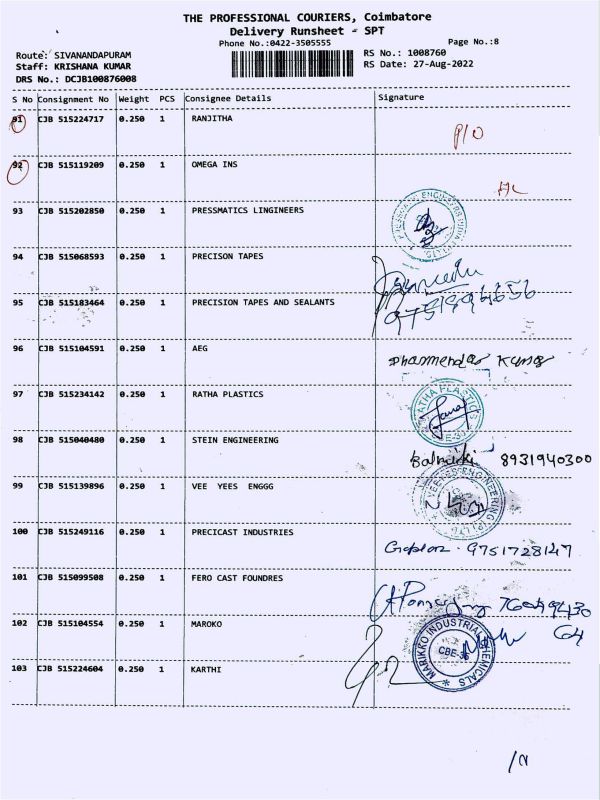 THE PROFESSIONAL COURIERS, Coimbatore
Delivery Runsheet - SPT
Phone No.:0422-3505555 Page No.:8
Route: SIVANANDAPURAM RS No.: 1008760
Staff: KRISHANA KUMAR RS Date: 27-Aug-2022
DRS No.: DCJB100876008
S No Consignment No Weight PCS Consignee Details Signature
91 CJB 515224717 0.250 1 RANJITHA
P/O
92 CJB 515119209 0.250 1 OMEGA INS
93 CJB 515202850 0.250 1 PRESSMATICS LINGINEERS
94 CJB 515068593 0.250 1 PRECISON TAPES
95 CJB 515183464 0.250 1 PRECISION TAPES AND SEALANTS
96 CJB 515104591 0.250 1 AEG
Dharmendar Kumar
97 CJB 515234142 0.250 1 RATHA PLASTICS
RATHA PLASTICS
98 CJB 515040480 0.250 1 STEIN ENGINEERING
Balmiki 8931940300
99 CJB 515139896 0.250 1 VEE YEES ENGGG
100 CJB 515249116 0.250 1 PRECICAST INDUSTRIES
9751728147
101 CJB 515099508 0.250 1 FERO CAST FOUNDRES
102 CJB 515104554 0.250 1 MAROKO
64
MARIKKO INDUSTRIAL CHEMICALS
CBE-36
103 CJB 515224604 0.250 1 KARTHI